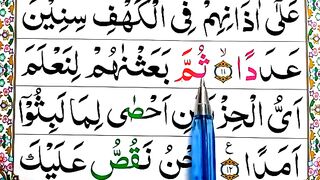 عَلٰۤى اٰذَانِهِمْ فِی الْكَهْفِ سِنِیْنَ
عَدَدًا ۙ ۱۱ ثُمَّ بَعَثْنٰهُمْ لِنَعْلَمَ
اَیُّ الْحِزْبَیْنِ اَحْصٰی لِمَا لَبِثُوْۤا
اَمَدًا ع ۱۲ نَحْنُ نَقُصُّ عَلَیْكَ